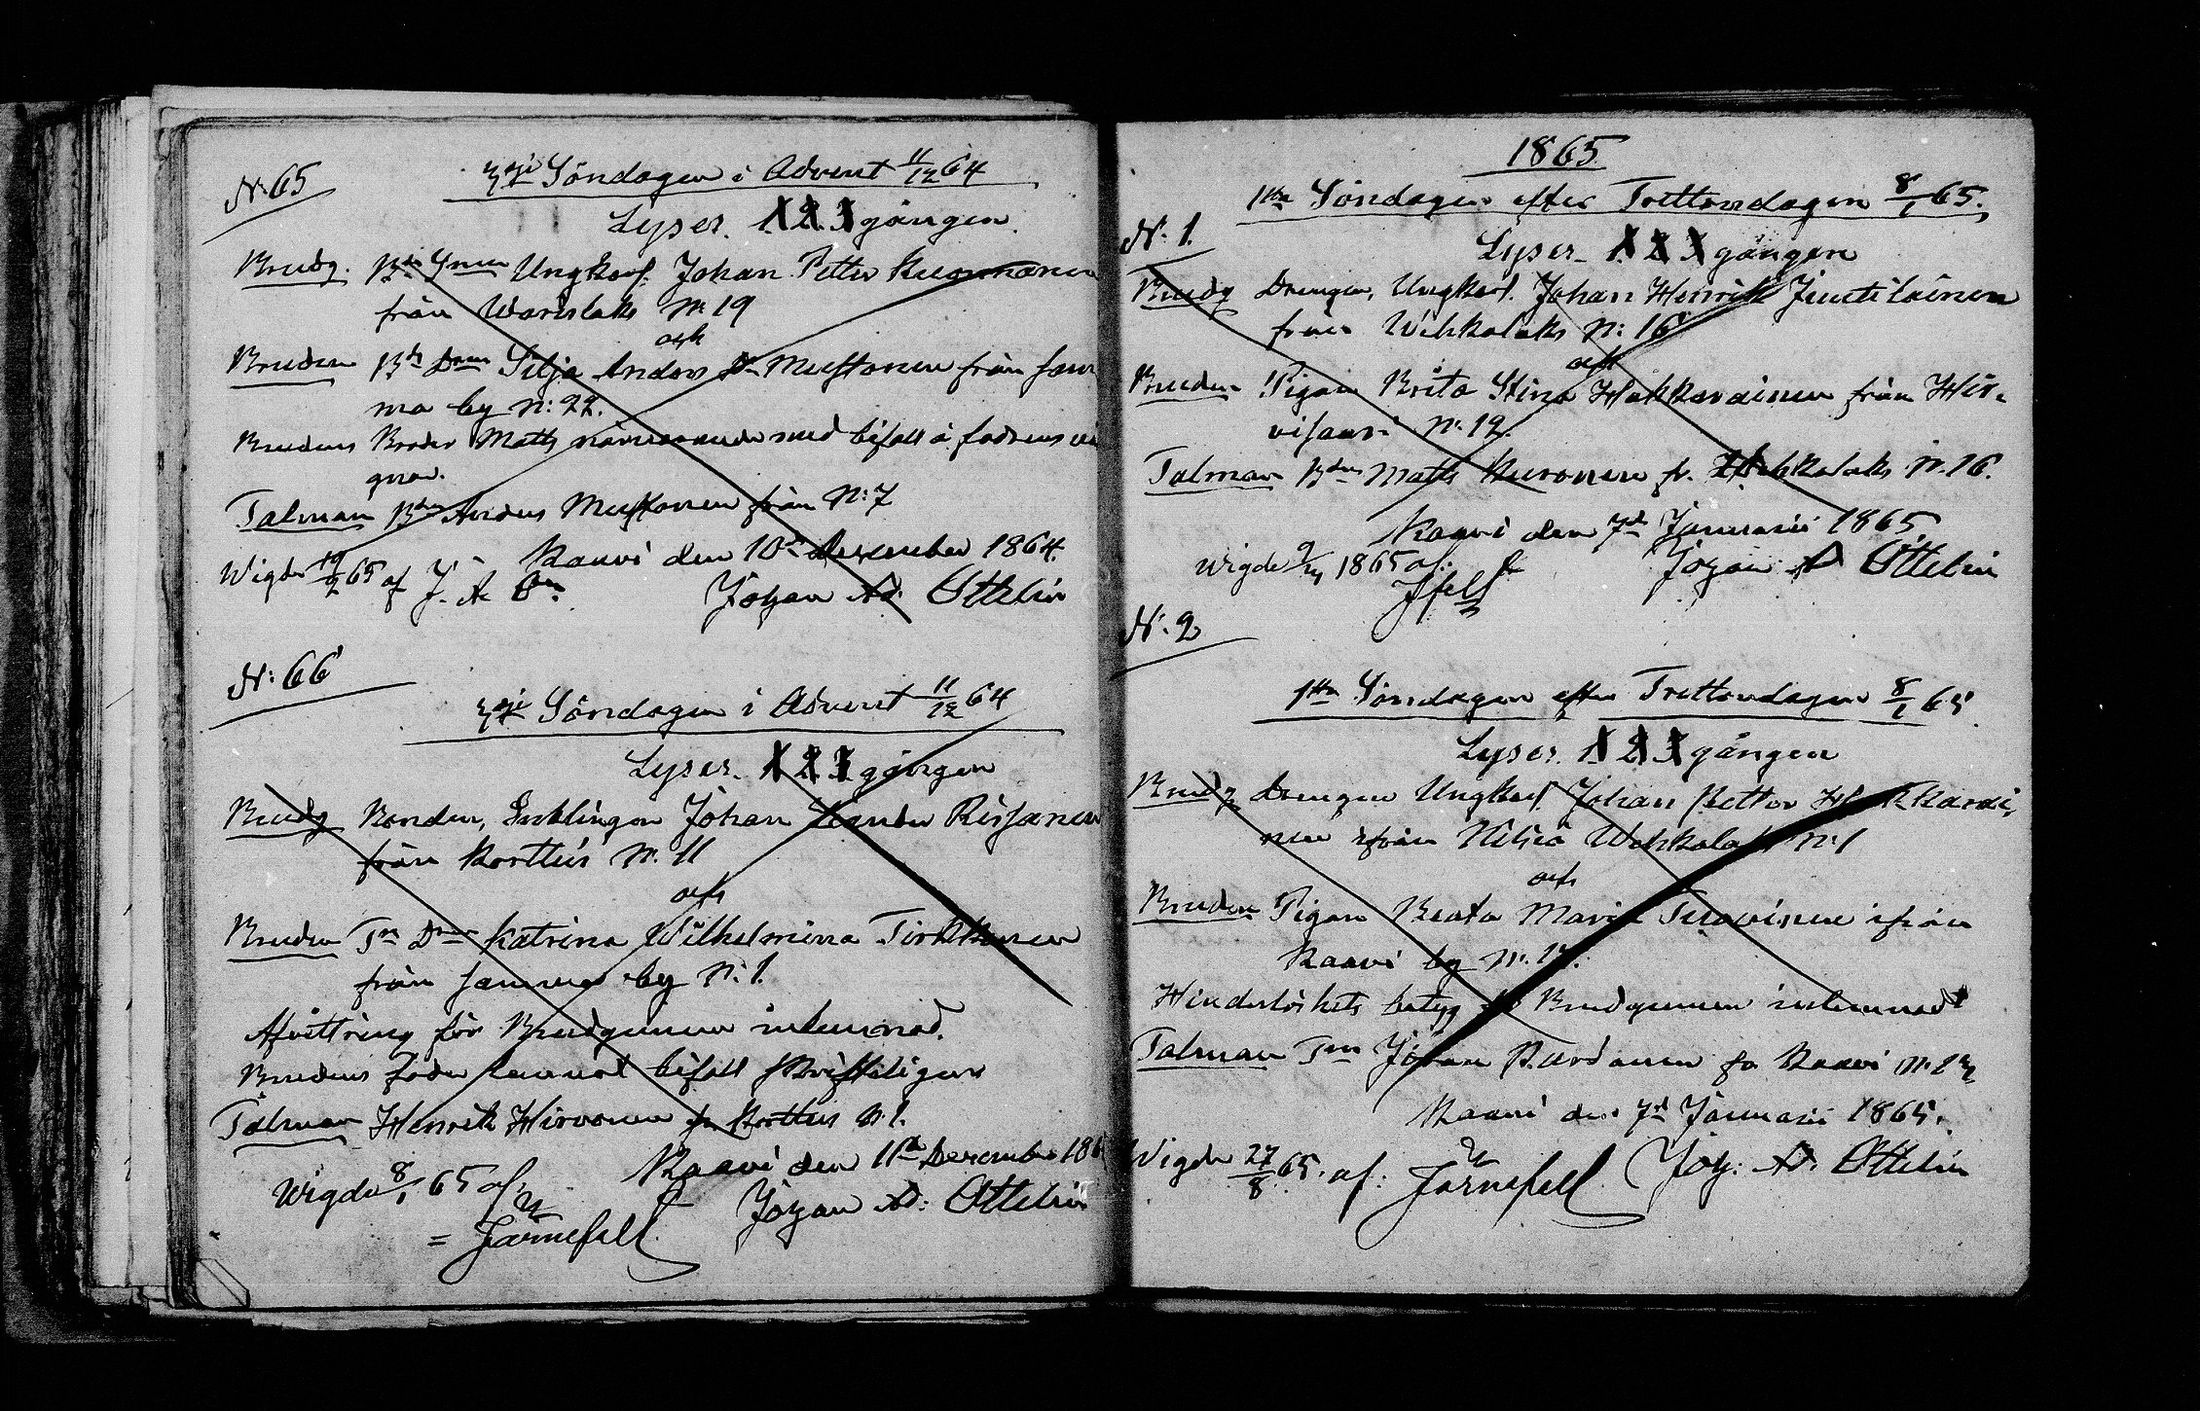 N: 65
3dje Söndagen i Advent 11/12 64
Lyser 1. 2. 3 gången.
Brudg. Bd Snen Ungkarl. Johan Petter Kuosmanen
från Warislaks N: 19
och
Bruden Bds Dren Silja Anders Dr Mustonen från sam
ma by N: 22.
Brudens Broder Matts närvarande med bifall å fadrens
gnar.
Talman Bdn Anders Mustonen från N: 7
Kaavi den 10de December 1864.
Wigde 19/2 65 af J. A. On.
Johan Ad. Ottelin
N: 66
3dje Söndagen i Advent 11/12 64
Lyser. 1. 2. 3 gången
Brudg Bonden, Enklingen Johan Rissanen
från Kortteis N: 11
och
Bruden Tn Dren Katrina Wilhelmina Tirkkonen
från samma by N: 1.
Afvittring för Brudgummen inlemnad.
Brudens fader lemnat bifall skriftligen
Talman Henrik Hirvonen fr Kortteis N: 1.
Kaavi den 11te December 186
Wigde 8/1 65 af.
Johan Ad: Ottelin
= Järnefelt.
1865
1sta Söndagen efter Trettondagen 8/1 65.
N: 1.
Lyser 1 2 3 gången
Brudg Drengen, Ungkarl. Johan Henrik Juutilainen
från Wehkalaks N: 16
och
Bruden Pigan Brita Stina Hakkarainen från Hir-
visaari N: 12.
Talman Bdn Matts Kuronen fr. Wehkalaks N. 16.
Kaavi den 7de Januarii 1865
Wigde 1865 af:
Johan Ad Ottelin
Jfelt
N: 2
1sta Söndagen efter Trettondagen 8/1 65
Lyser. 1 2 3 gången
Brudg Drengen Ungkarl Johan Petter Hakkarai-
nen ifrån Nilsiä Wehkalaks N: 1
och
Bruden Pigan Beata Maria Tuovinen ifrån
Kaavi by N: 17.
Hinderlöshets betyg för Brudgummen inlemnadt
Talman Tn Johan Pardanen fr Kaavi N: 17
Kaavi den 7de Januarii 1865.
Wigde 27/8 65. af: Järnefelt. Joh: Ad. Ottelin